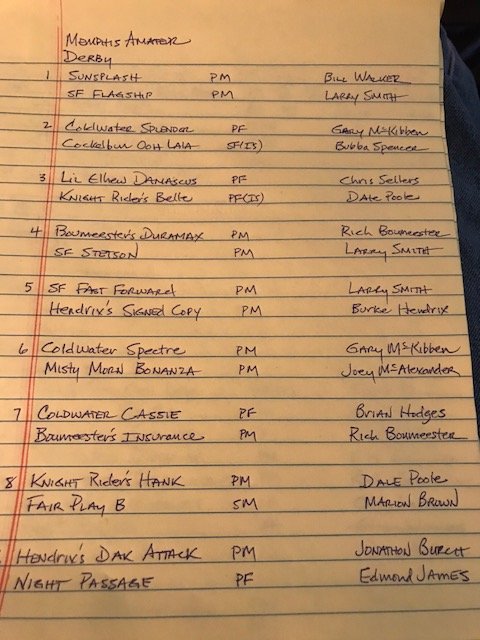 Memphis Amateur
Derby
1 Sunsplash PM Bill Walker
SF Flagship PM Larry Smith
2 Coldwater Splendor PF Gary McKibben
Cockelbur Ooh Lala SF(IS) Bubba Spencer
3 Li'l Elhew Danascus PF Chris Sellers
Knight Rider's Belle PF(IS) Dale Poole
4 Boumeester's Duramax PM Rich Boumeester
SF Stetson PM Larry Smith
5 SF Fast Forward PM Larry Smith
Hendrix's Signed Copy PM Burke Hendrix
6 Coldwater Spectre PM Gary McKibben
Misty Morn Bonanza PM Joey McAlexander
7 Coldwater Cassie PF Brian Hodges
Boumeester's Insurance PM Rich Boumeester
8 Knight Rider's Hank PM Dale Poole
Fair Play B SM Marion Brown
Hendrix's Dak Attack PM Jonathon Burch
Night Passage PF Edmond James